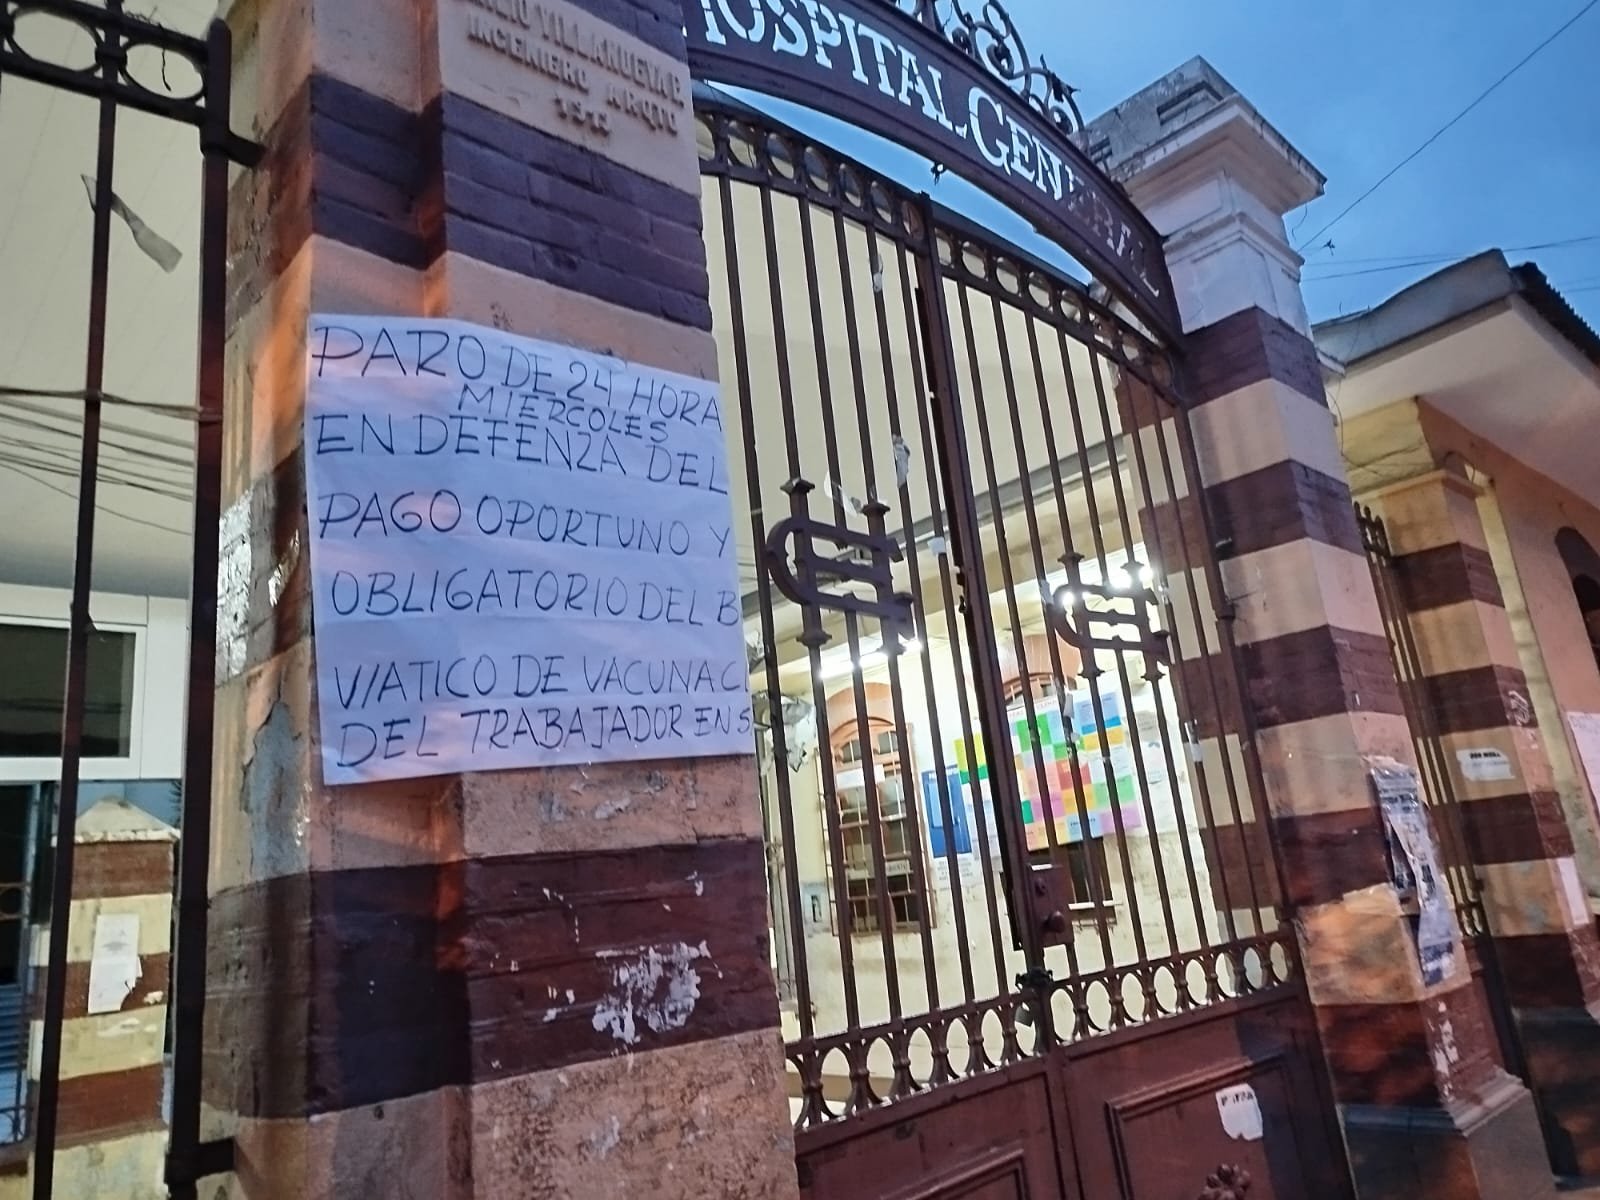 VILLANUEVA P.
INGENIERO ARQTO
HOSPITAL GENERAL
PARO DE 24 HORA
MIERCOLES
EN DEFENZA DEL
PAGO OPORTUNO Y
OBLIGATORIO DEL B
VIATICO DE VACUNAC
DEL TRABAJADOR EN S